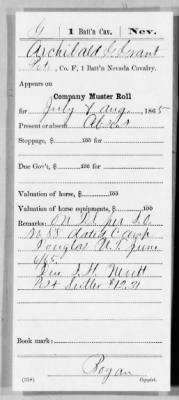 G | 1 Batt'n Cav. | Nev.
Archibald Grant
Pvt, Co. F, 1 Batt'n Nevada Cavalry.
Appears on
Company Muster Roll
for July & Aug, 1865
Present or absent Absent
Stoppage, $ 100 for
Due Gov't, $ 100 for
Valuation of horse, $ 100
Valuation of horse equipments, $ 100
Remarks: On D.S. per S.O.
No 58 dated Camp
Douglas U.T. June
6/65.
Due J.H.
Sutler $12.71
Book mark:
Bogan
(358) Copyist.